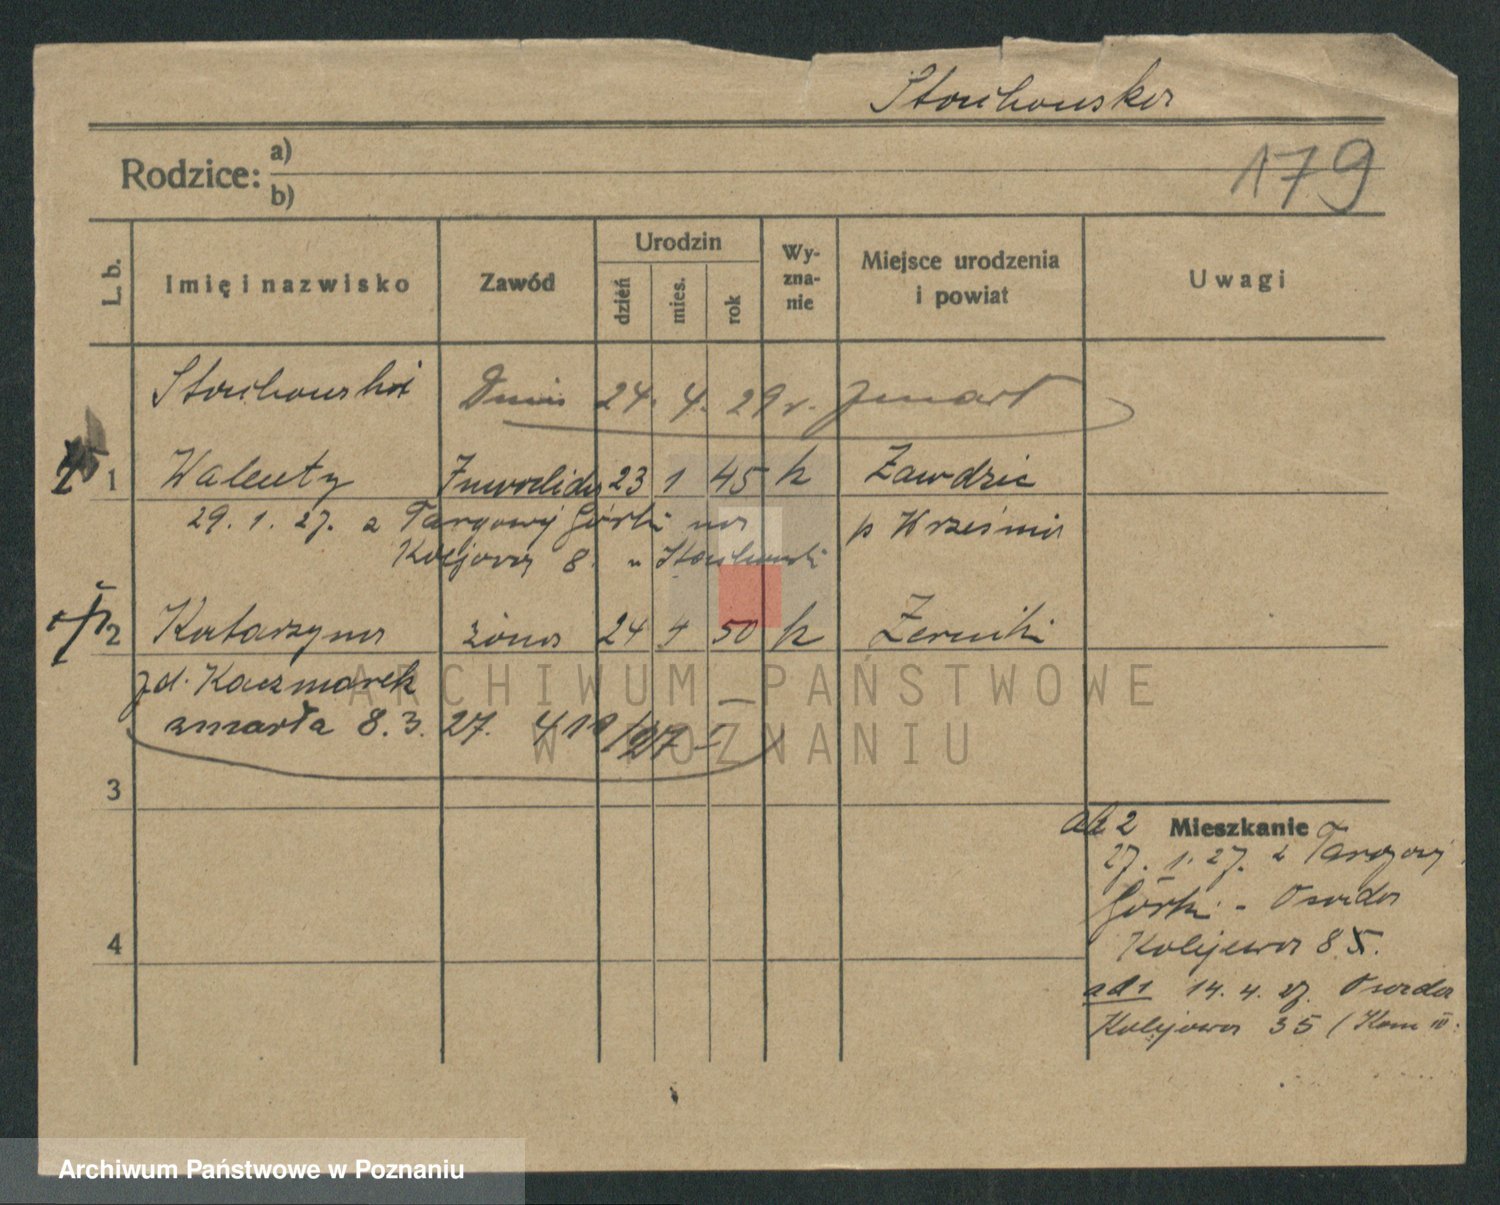 Stachowska
179
Rodzice: a)
b)
L. b.
Imię i nazwisko
Zawód
Urodzin
dzień
mies.
rok
Wy-
zna-
nie
Miejsce urodzenia
i powiat
Uwagi
Stachowski Dnia 24. 4. 29 r. zmarł
1 Walenty Inwalida 23 1 45 k Zawdzie
29. 1. 27. z Targowej Górki na p Września
Kolejowa 8. u Stachowski
2 Katarzyna żona 24 4 50 k Żerniki
zd. Kaczmarek
zmarła 8. 3. 27.
3
ad 2 Mieszkanie
27. 1. 27. z Targowej
Górki - Osada
4
Kolejowa 8
ad 1 14. 4. 27. Osada
Kolejowa 35
ARCHIWUM PAŃSTWOWE
W POZNANIU
Archiwum Państwowe w Poznaniu